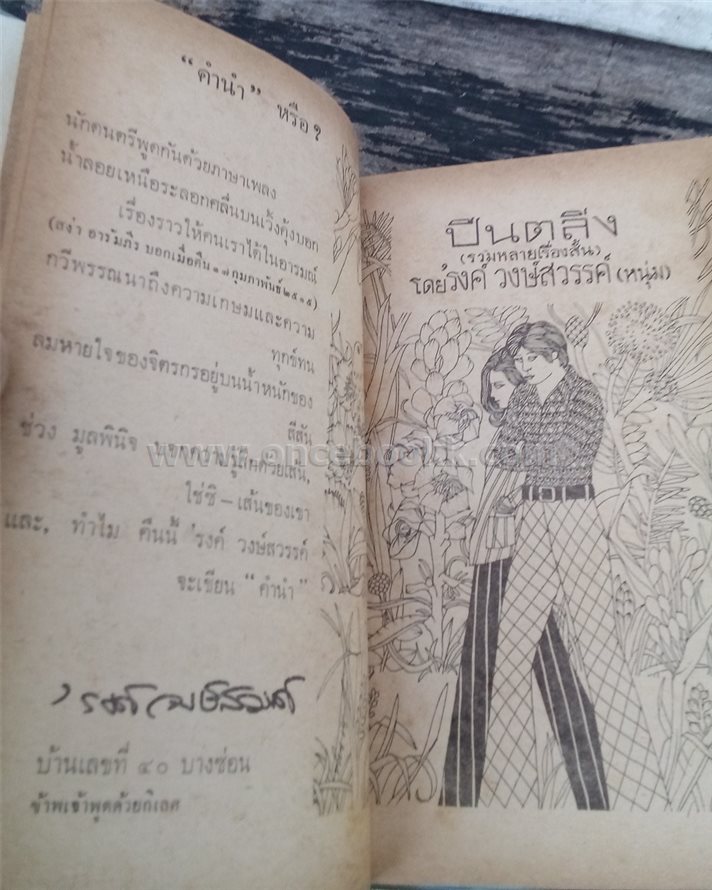 “คำนำ” หรือ ?
นักดนตรีพูดกันด้วยภาษาเพลง
น้ำลอยเหนือระลอกคลื่นบนเวิ้งคุ้งบอก
เรื่องราวให้คนเราได้ในอารมณ์
(สง่า อารัมภีร บอกเมื่อคืน ๑๗ กุมภาพันธ์ ๒๕๑๕)
กวีพรรณนาถึงความเกษมและความ
ทุกข์ทน
ลมหายใจของจิตรกรอยู่บนน้ำหนักของ
สีสัน
ช่วง มูลพินิจ บอกความรู้สึกด้วยเส้น,
ใช่ซิ – เส้นของเขา
และ, ทำไม คืนนี้ 'รงค์ วงษ์สวรรค์
จะเขียน “คำนำ”
'รงค์ วงษ์สวรรค์
บ้านเลขที่ ๔๐ บางซ่อน
ข้าพเจ้าพูดด้วยกิเลศ
ปีนตลิ่ง
(รวมหลายเรื่องสั้น)
โดย 'รงค์ วงษ์สวรรค์ (หนุ่ม)
www.oncebook.com